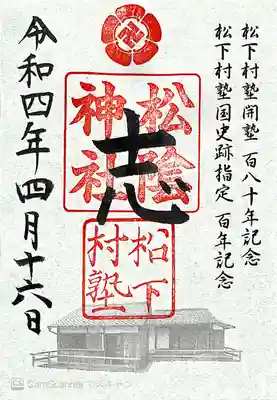 松下村塾開塾 百八十年記念
松下村塾国史跡指定 百年記念
松陰
神社
志
松下
村塾
令和四年四月十六日
CamScannerでスキャン